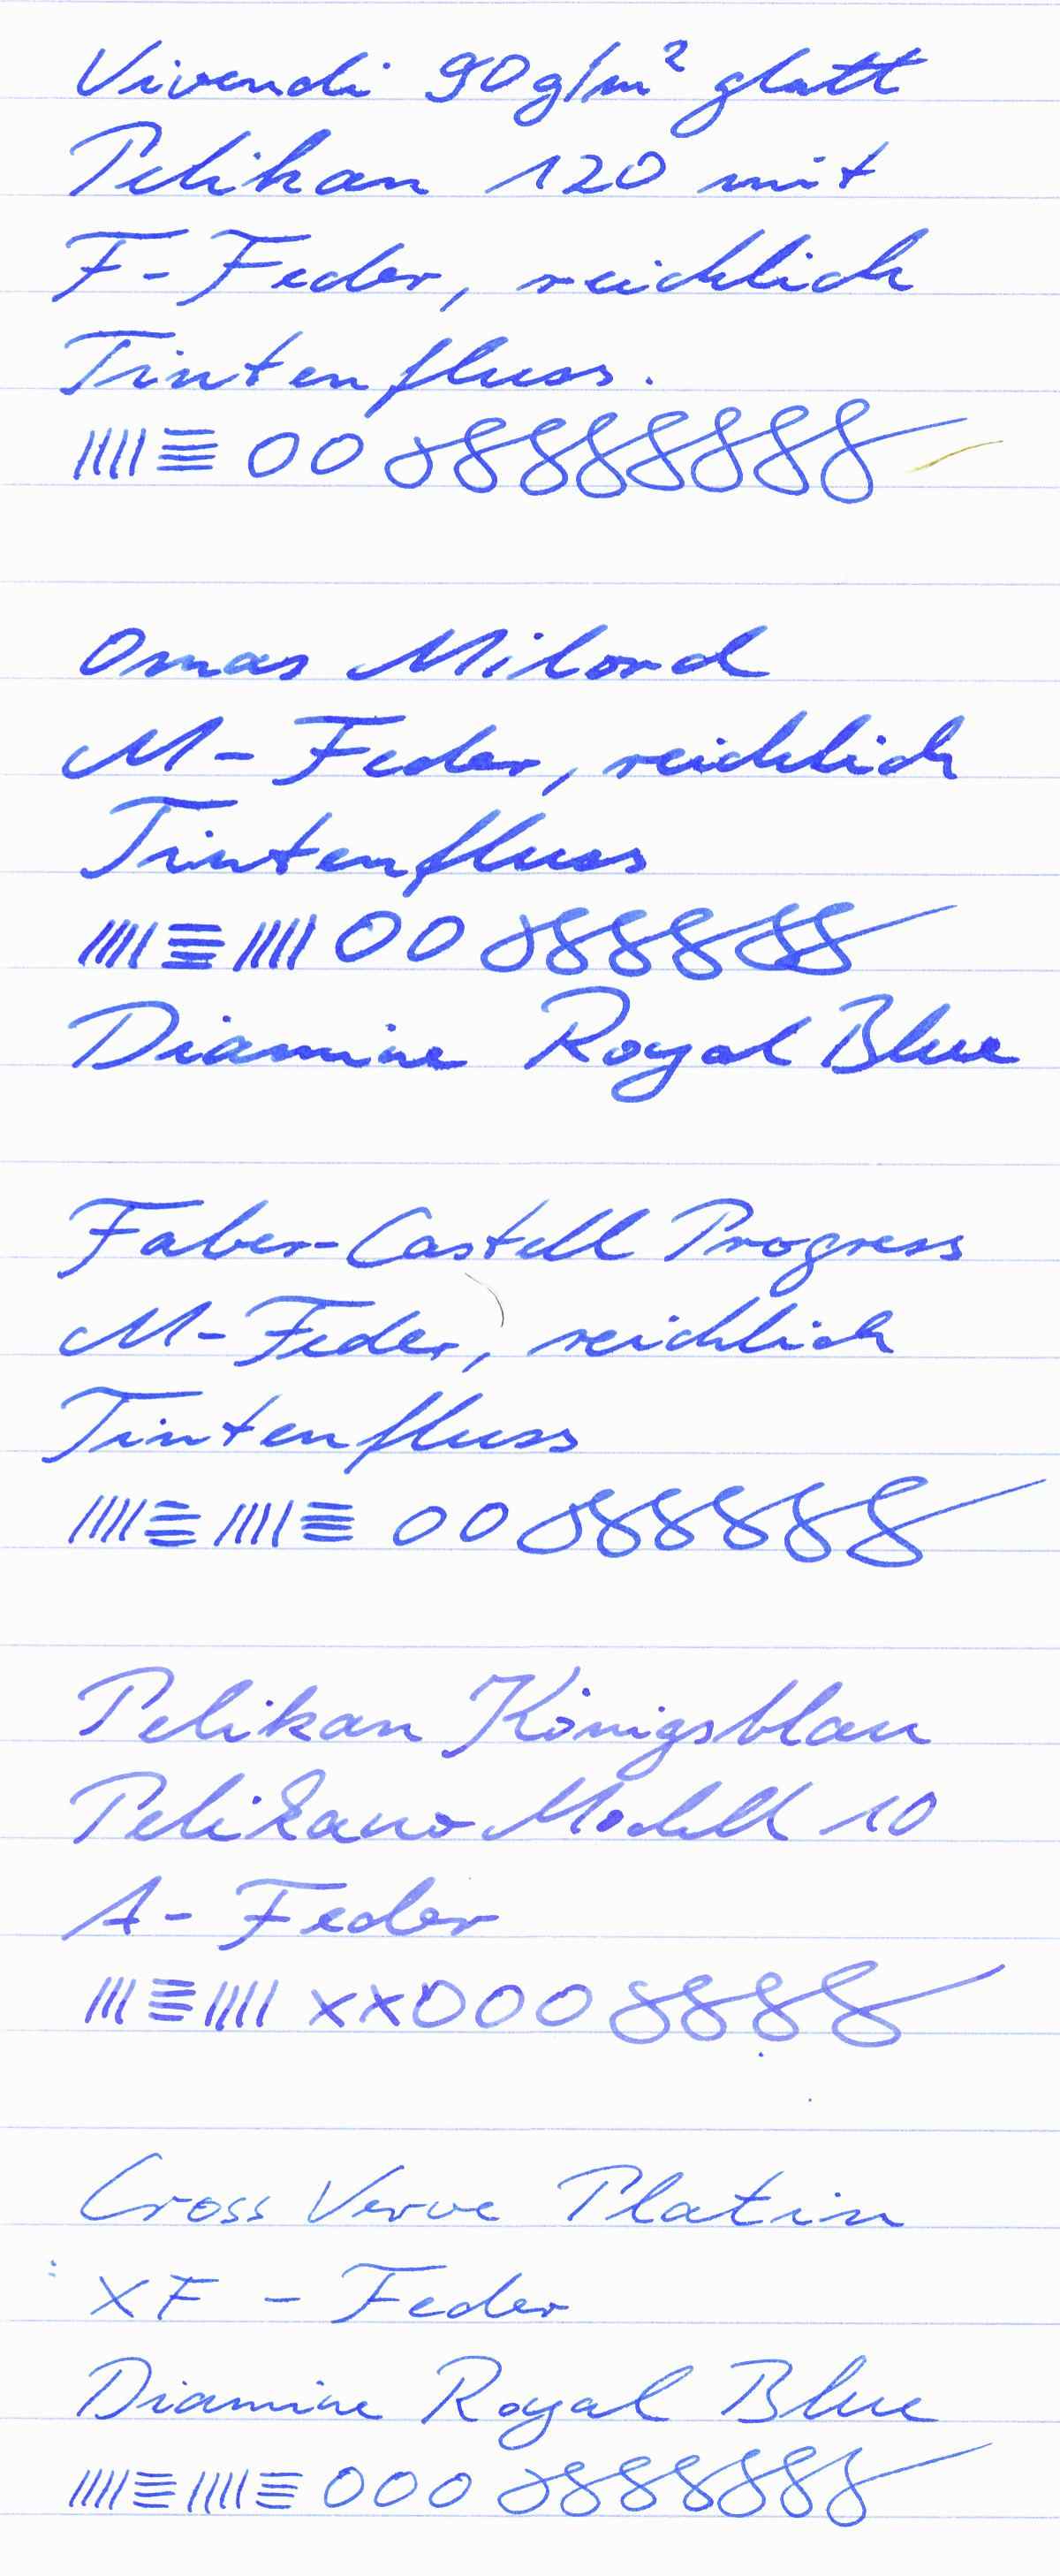 Vivendi 90g/m² glatt
Pelikan 120 mit
F-Feder, reichlich
Tintenfluss.
Omas Milord
M-Feder, reichlich
Tintenfluss
Diamine Royal Blue
Faber-Castell Progress
M-Feder, reichlich
Tintenfluss
Pelikan Königsblau
Pelikano Modell 10
A-Feder
Cross Verve Platin
XF - Feder
Diamine Royal Blue